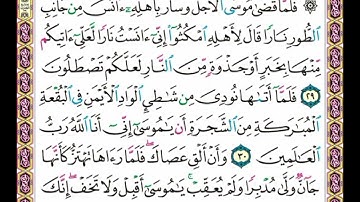 فَلَمَّا قَضَىٰ مُوسَى ٱلْأَجَلَ وَسَارَ بِأَهْلِهِۦٓ ءَانَسَ مِن جَانِبِ
ٱلطُّورِ نَارًا قَالَ لِأَهْلِهِ ٱمْكُثُوٓا۟ إِنِّىٓ ءَانَسْتُ نَارًا لَّعَلِّىٓ ءَاتِيكُم
مِّنْهَا بِخَبَرٍ أَوْ جَذْوَةٍ مِّنَ ٱلنَّارِ لَعَلَّكُمْ تَصْطَلُونَ
٢٩ فَلَمَّآ أَتَىٰهَا نُودِىَ مِن شَٰطِئِ ٱلْوَادِ ٱلْأَيْمَنِ فِى ٱلْبُقْعَةِ
ٱلْمُبَٰرَكَةِ مِنَ ٱلشَّجَرَةِ أَن يَٰمُوسَىٰٓ إِنِّىٓ أَنَا ٱللَّهُ رَبُّ
ٱلْعَٰلَمِينَ ٣٠ وَأَنْ أَلْقِ عَصَاكَ فَلَمَّا رَءَاهَا تَهْتَزُّ كَأَنَّهَا
جَآنٌّ وَلَّىٰ مُدْبِرًا وَلَمْ يُعَقِّبْ يَٰمُوسَىٰٓ أَقْبِلْ وَلَا تَخَفْ إِنَّكَ